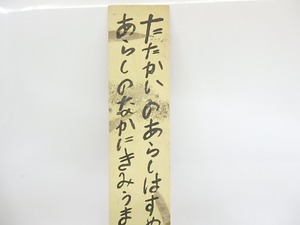 たたかいのあらしはすぬ
あらしのなかにきみうま